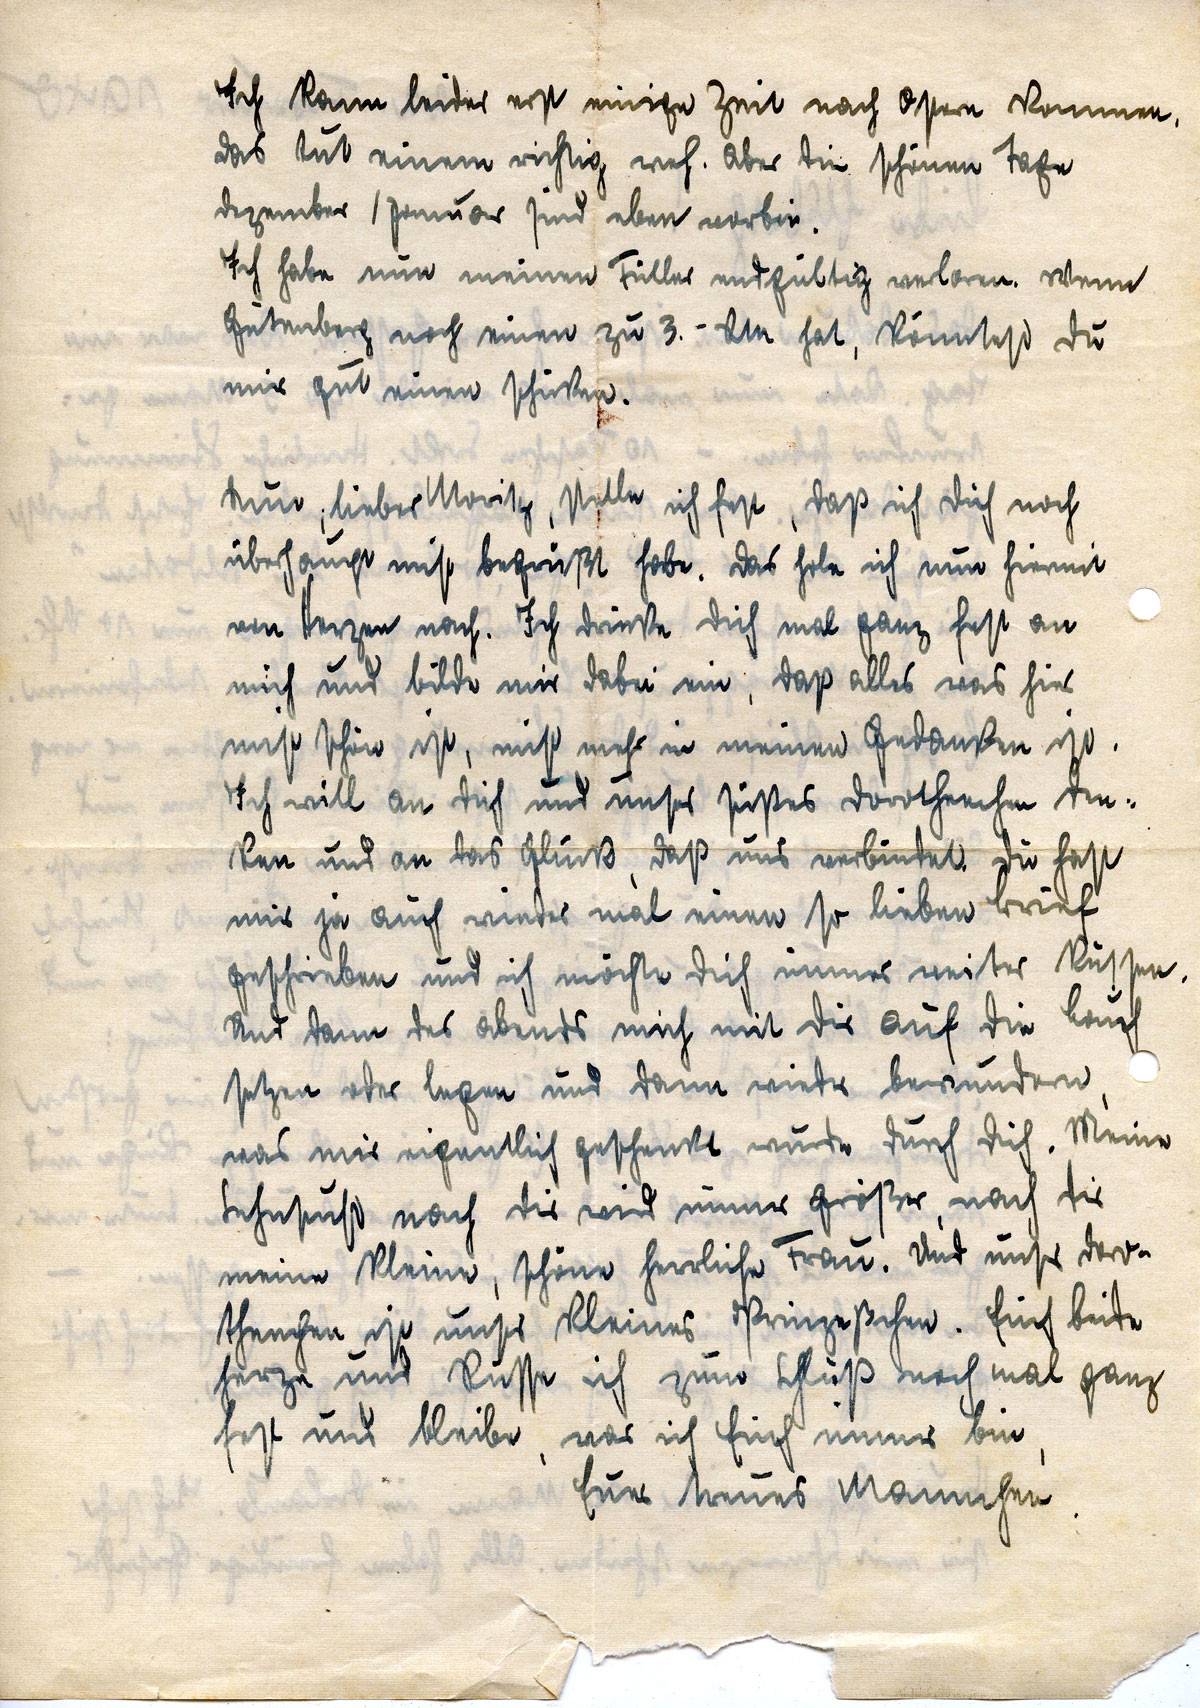 Ich kann leider erst einige Zeit nach Ostern kommen.
das tut einem richtig weh. Aber die schönen Tage
dezember / Januar sind eben vorbei.
Ich habe nun meinen Füller endgültig verloren. Wenn
Gutenberg noch einen zu 3.- Rm hat, könntest du
mir gut einen schicken.
Nun, lieber Moritz, stelle ich fest, daß ich dich noch
überhaupt nicht begrüßt habe. Das hole ich nun hiermit
von Herzen nach. Ich drücke dich mal ganz fest an
mich und bilde mir dabei ein, daß alles was hier
nicht schön ist, nicht mehr in meinen Gedanken ist.
Ich will an dich und unser süßes Dorotheechen den-
ken und an das Glück, daß uns verbindet. Du hast
mir ja auch wieder mal einen so lieben Brief
geschrieben und ich möchte dich immer weiter küssen.
Und dann des abends mich mit dir auf die Couch
setzen oder legen und dann wieder bewundern,
was mir eigentlich geschenkt wurde durch dich. Meine
Sehnsucht nach dir wird immer größer, nach dir
meine kleine, schöne herrliche Frau. Und unser Doro-
theechen ist unser kleines Prinzeßchen. Euch beide
herze und küsse ich zum Schluß noch mal ganz
fest und bleibe, was ich Euch immer bin,
Euer treues Männchen.